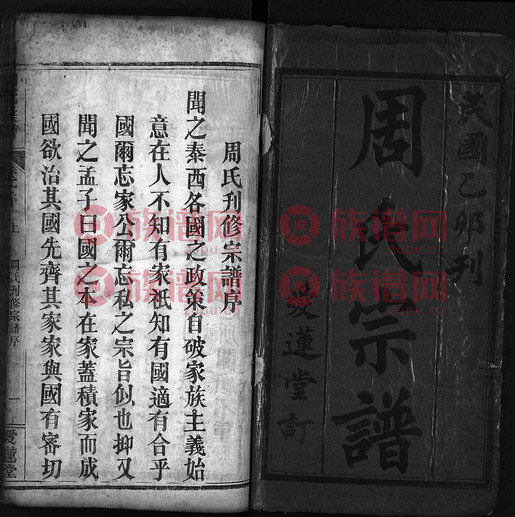 民國乙卯刊
周氏宗譜
愛蓮堂訂
周氏刋修宗譜序
聞之泰西各國之政策自破家族主義始
意在人不知有家祇知有國適有合乎
國爾忘家公爾忘私之宗旨似也抑又
聞之孟子曰國之本在家蓋積家而成
國欲治其國先齊其家家與國有審切
周氏刋修宗譜序
一
愛蓮堂
族谱网
族谱网
族谱网
族谱网